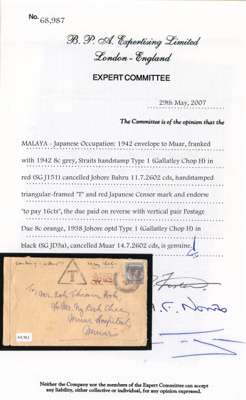 No. 68,987
B. P. A. Expertising Limited
London - England
EXPERT COMMITTEE
29th May, 2007
The Committee is of the opinion that the
MALAYA - Japanese Occupation: 1942 envelope to Muar, franked
with 1942 8c grey, Straits handstamp Type 1 (Gallatley Chop H) in
red (SG J151) cancelled Johore Bahru 11.7.2602 cds, handstamped
triangular-framed "T" and red Japanese Censor mark and endorse
"to pay 16cts", the due paid on reverse with vertical pair Postage
Due 8c orange, 1938 Johore optd Type 1 (Gallatley Chop H) in
black (SG JD3a), cancelled Muar 14.7.2602 cds, is genuine.
T
Muar Hospital,
Muar
Neither the Company nor the members of the Expert Committee can accept
any liability, either collective or individual, for any opinion expressed.